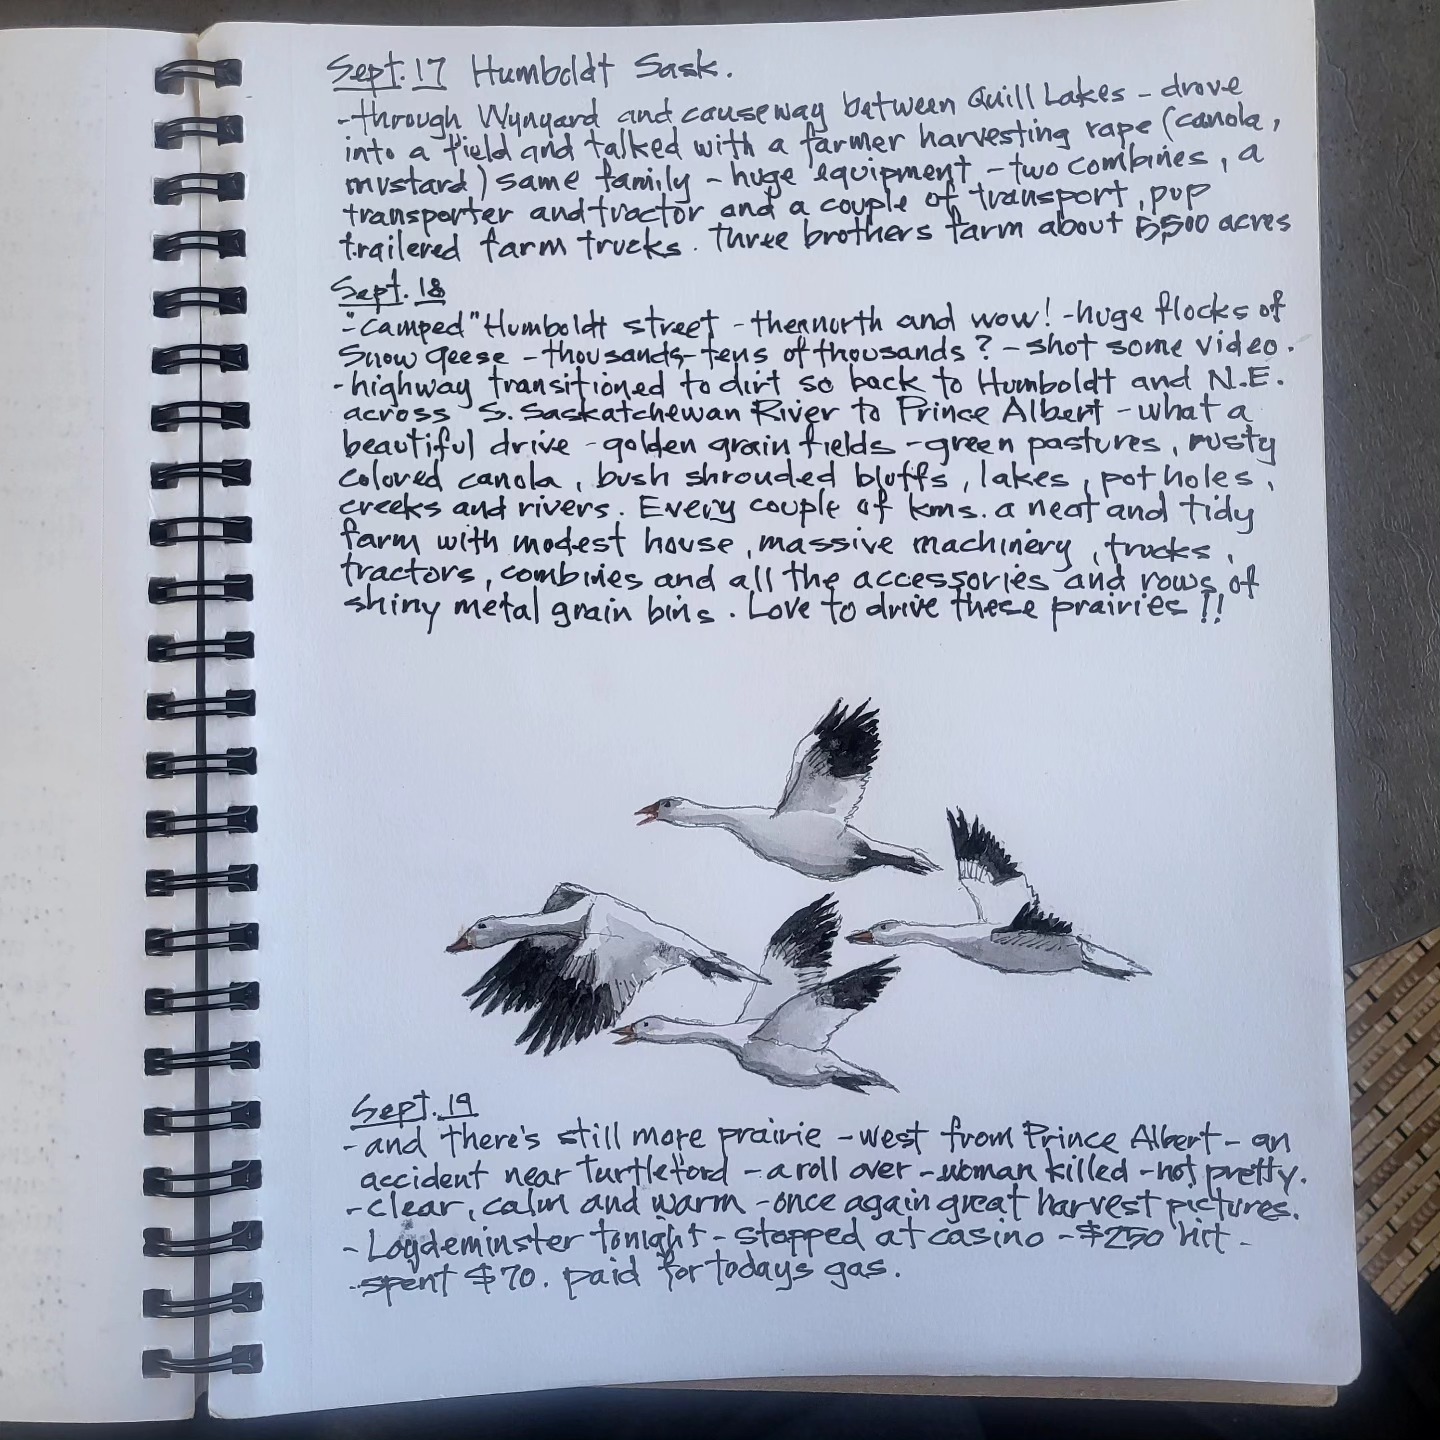 Sept. 17 Humboldt Sask.
-through Wynyard and causeway between Quill Lakes - drove
into a field and talked with a farmer harvesting rape (canola,
mustard) same family - huge equipment - two combines, a
transporter and tractor and a couple of transport, pup
trailered farm trucks. Three brothers farm about 5,500 acres
Sept. 18
-"camped" Humboldt street - then north and wow! - huge flocks of
Snow geese - thousands - tens of thousands? - shot some video.
-highway transitioned to dirt so back to Humboldt and N.E.
across S. Saskatchewan River to Prince Albert - what a
beautiful drive - golden grain fields - green pastures, rusty
colored canola, bush shrouded bluffs, lakes, pot holes,
creeks and rivers. Every couple of kms. a neat and tidy
farm with modest house, massive machinery, trucks,
tractors, combines and all the accessories and rows of
shiny metal grain bins. Love to drive these prairies!!
Sept. 19
- and there's still more prairie - west from Prince Albert - an
accident near Turtleford - a roll over - woman killed - not pretty.
- clear, calm and warm - once again great harvest pictures.
- Loydeminster tonight - stopped at casino - $250 hit -
- spent $70. paid for todays gas.